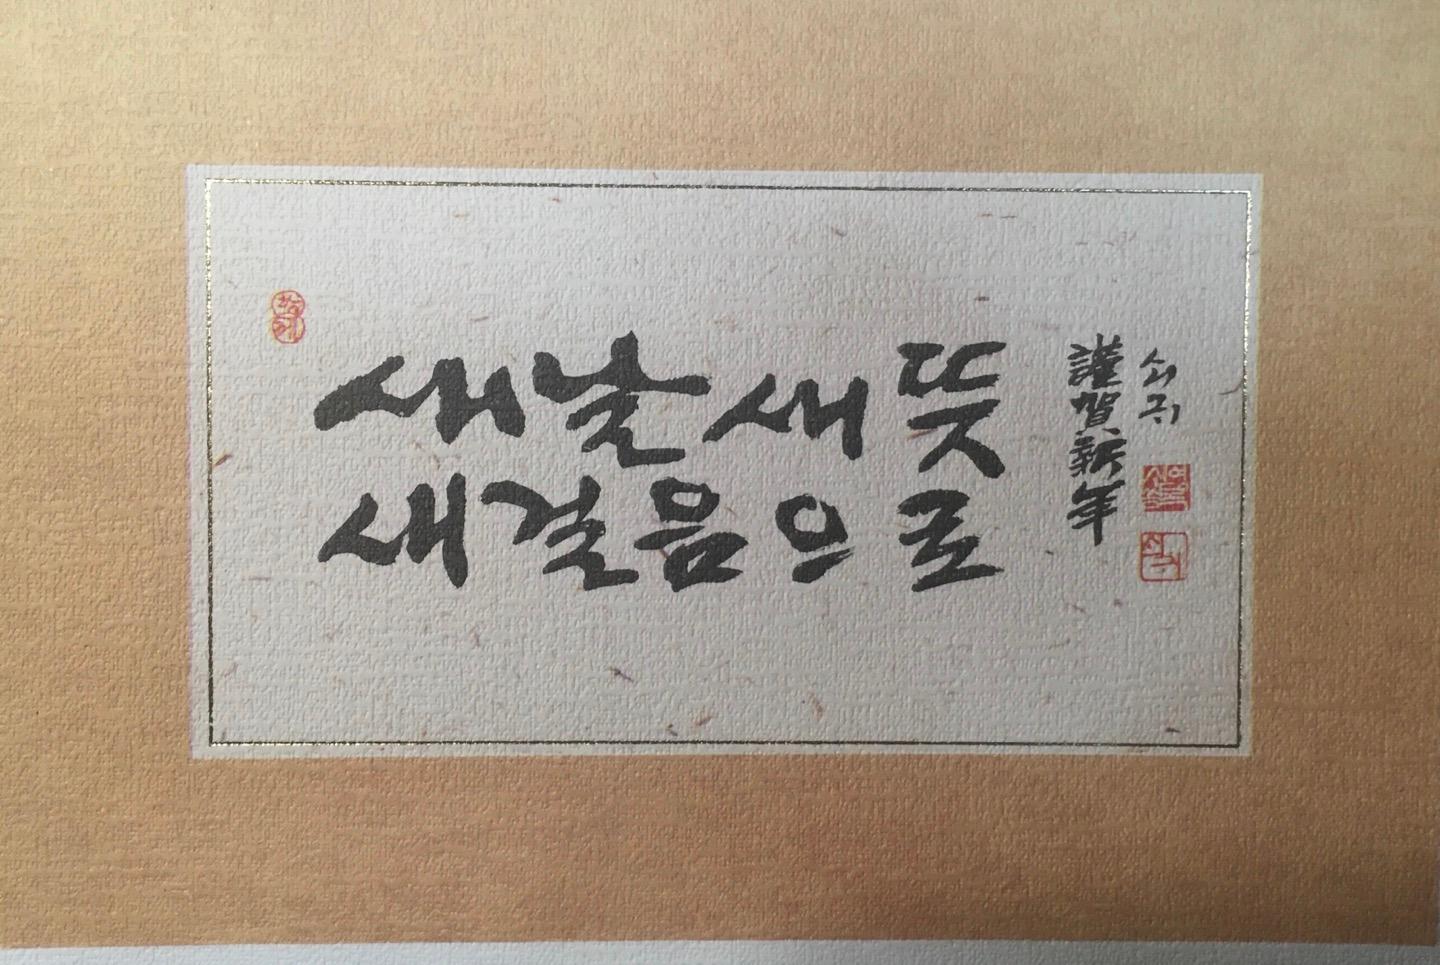 새날 새 뜻
새 걸음으로
謹賀新年